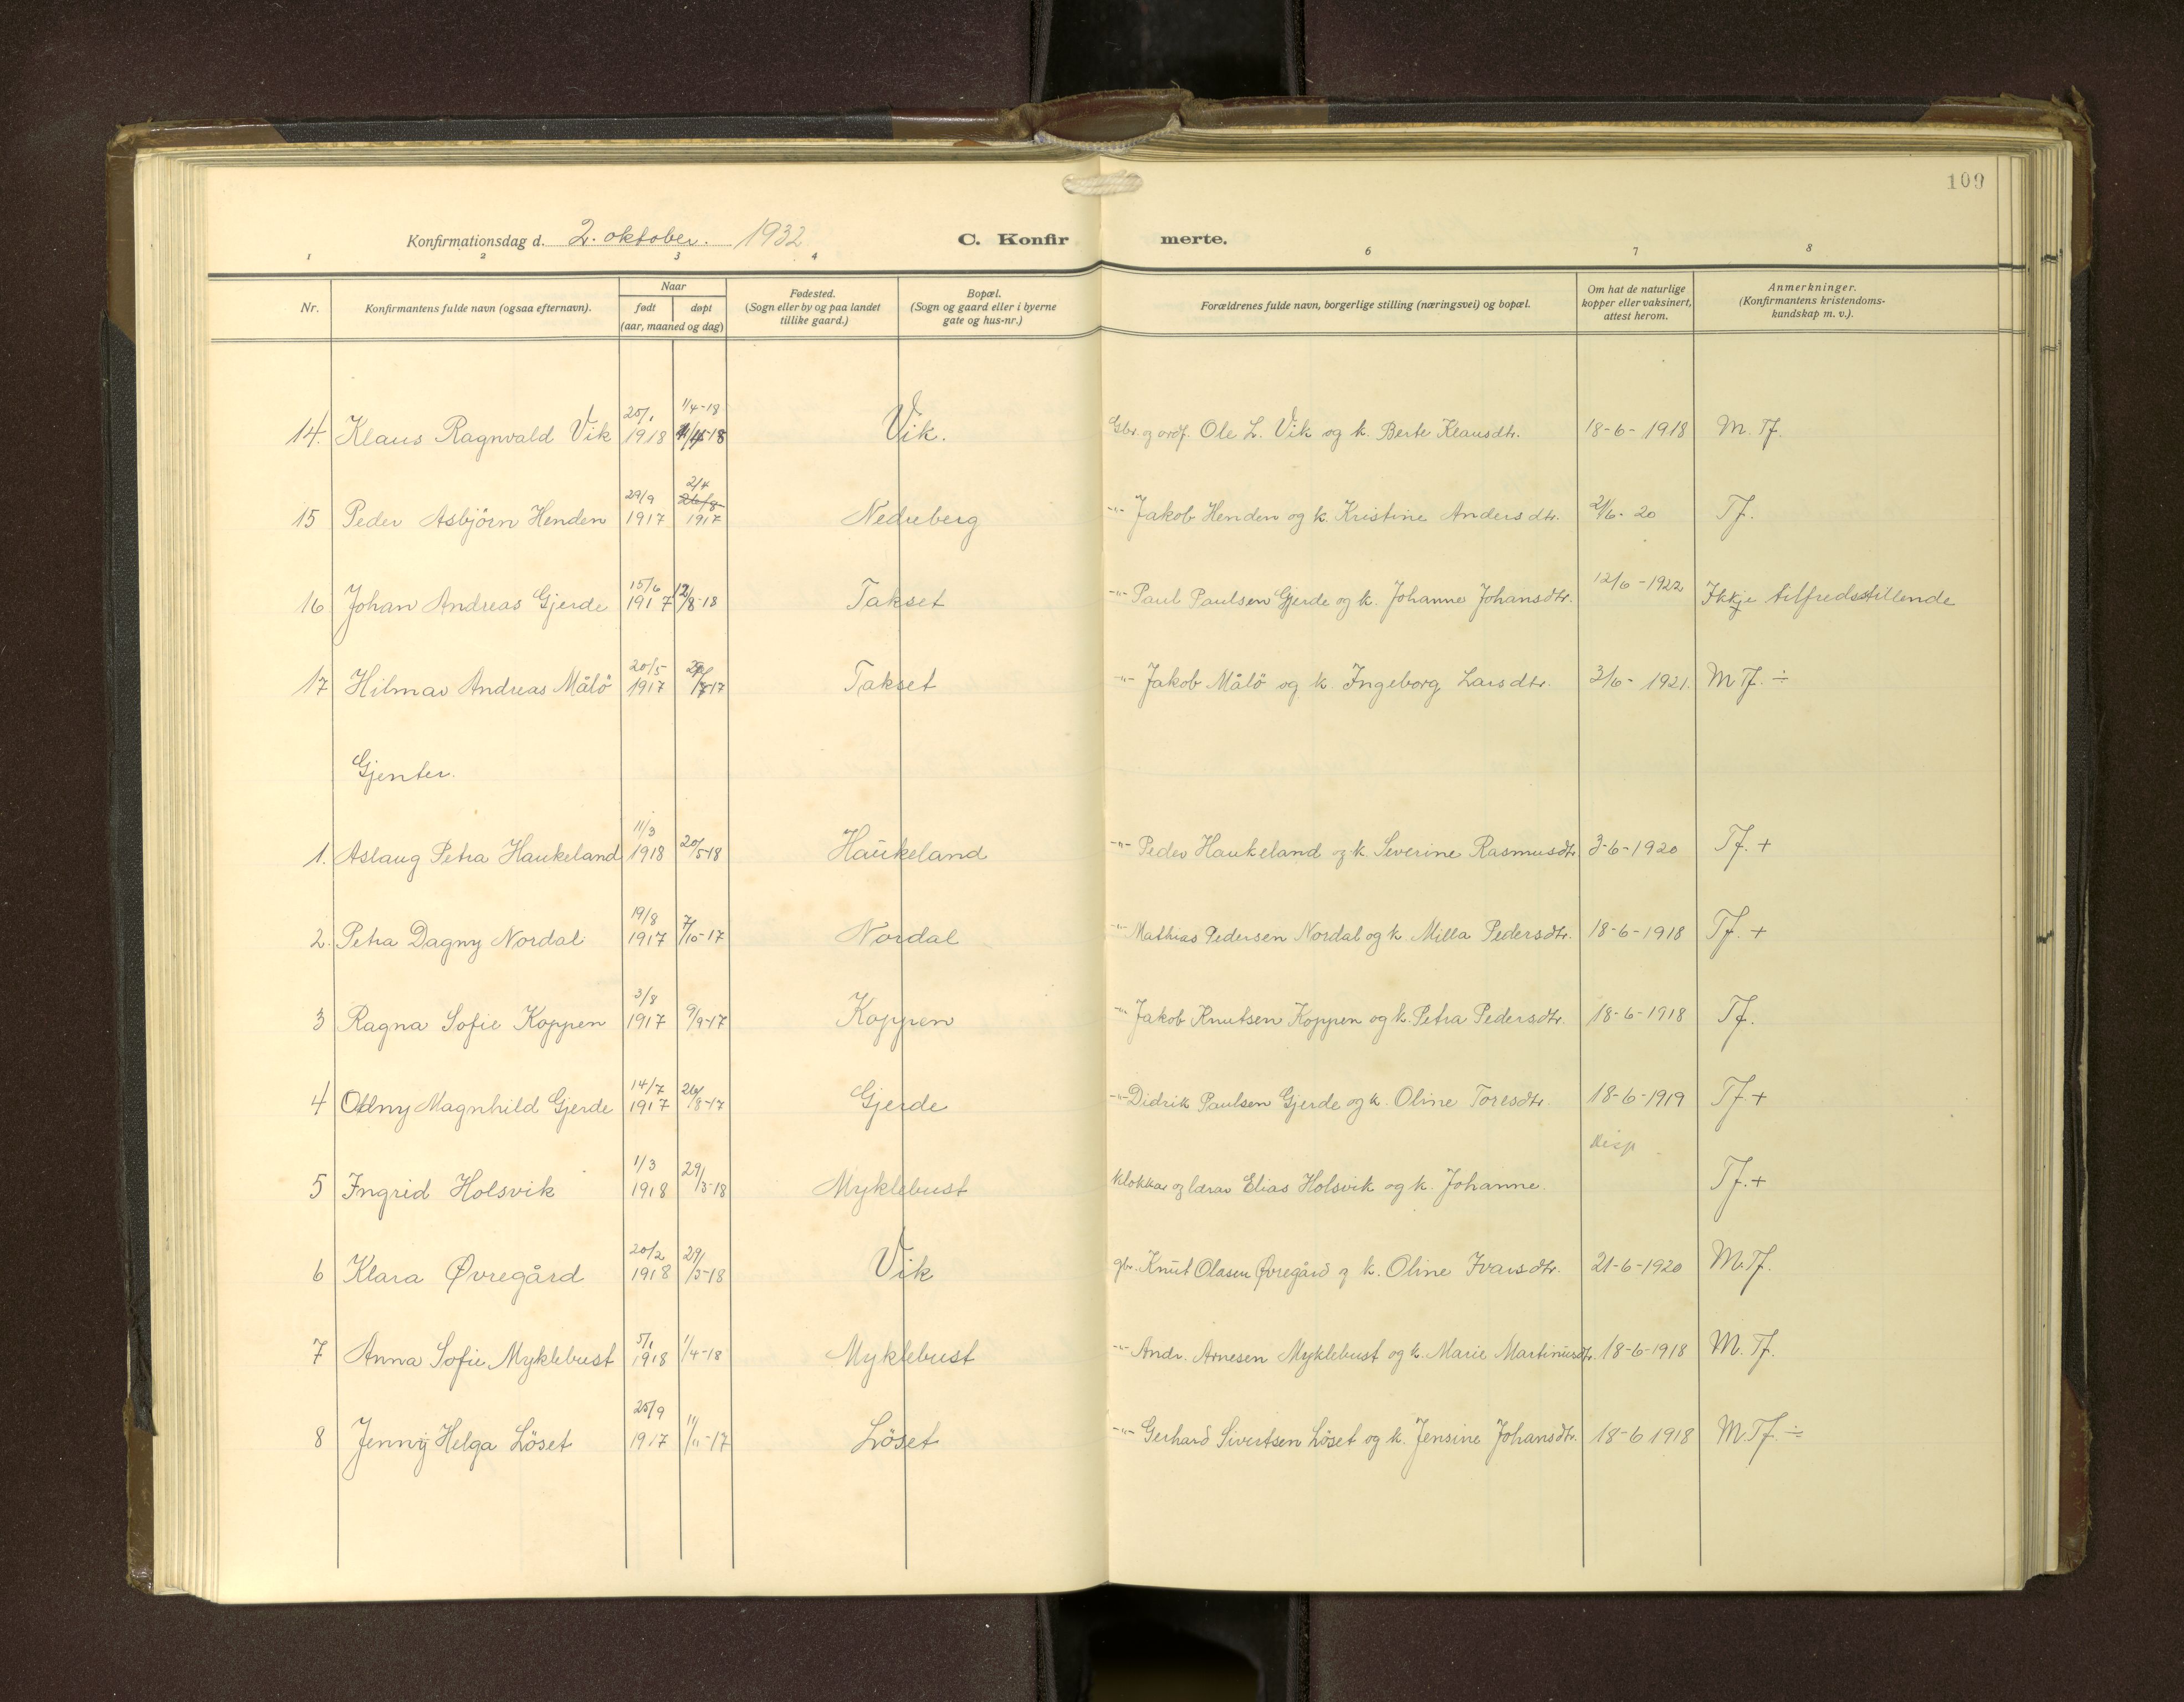 109
Konfirmationsdag d. 2. oktober. 1932
C. Konfirmerte.
1 2 3 4 6 7 8
Nr.
Konfirmantens fulde navn (ogsaa efternavn).
Naar
født døpt
(aar, maaned og dag)
Fødested.
(Sogn eller by og paa landet
tillike gaard.)
Bopæl.
(Sogn og gaard eller i byerne
gate og hus-nr.)
Forældrenes fulde navn, borgerlige stilling (næringsvei) og bopæl.
Om hat de naturlige
kopper eller vaksinert,
attest herom.
Anmerkninger.
(Konfirmantens kristendoms-
kundskap m. v.).
14. Klaus Ragnvald Vik 25/1 1918 1/4-18 Vik. Gbr. og ordf. Ole L. Vik og k. Berte Klausdtr. 18-6-1918 M. Tf.
15 Peder Asbjörn Henden 29/9 1917 2/4 1917 Nedreberg -"- Jakob Henden og k. Kristine Andersdtr. 21/6-20 Tf.
16 Johan Andreas Gjerde 15/6 1917 12/8-18 Takset -"- Paul Paulsen Gjerde og k. Johanne Johansdtr. 12/6-1922 Ikkje tilfredsstillende
17 Hilmar Andreas Målö 20/5 1917 Takset -"- Jakob Målö og k. Ingeborg Larsdtr. 3/6-1921. M Tf. ÷
Gjenter.
1. Aslaug Petra Haukeland 11/3 1918 20/5-18 Haukeland -"- Peder Haukeland og k. Severine Rasmusdtr 3-6-1920 Tf. +
2. Petra Dagny Nordal 19/8 1917 7/10-17 Nordal -"- Mathias Pedersen Nordal og k Milla Pedersdtr. 18-6-1918 Tf. +
3 Ragna Sofie Koppen 3/8 1917 9/9-17 Koppen -"- Jakob Knutsen Koppen og k. Petra Pedersdtr. 18-6-1918 Tf.
4 Oddny Magnhild Gjerde 14/7 1917 26/8-17 Gjerde -"- Didrik Paulsen Gjerde og k. Oline Toresdtr. 18-6-1919 Tf +
5 Ingrid Holsvik 1/3 1918 29/3-18 Myklebust Klokkar og lærar Elias Holsvik og k. Johanne. Disp Tf. +
6 Klara Øvregård 20/2 1918 29/3-18 Vik gbr. Knut Olasen Øvregård og k. Oline Ivarsdtr. 21-6-1920 M.Tf.
7 Anna Sofie Myklebust 5/1 1918 1/4-18 Myklebust -"- Andr. Arnesen Myklebust og k. Marie Martinusdtr. 18-6-1918 M. Tf.
8 Jenny Helga Löset 25/9 1917 11/11-17 Löset -"- Gerhard Sivertsen Löset og k. Jensine Johansdtr. 18-6 1918 M.Tf. ÷